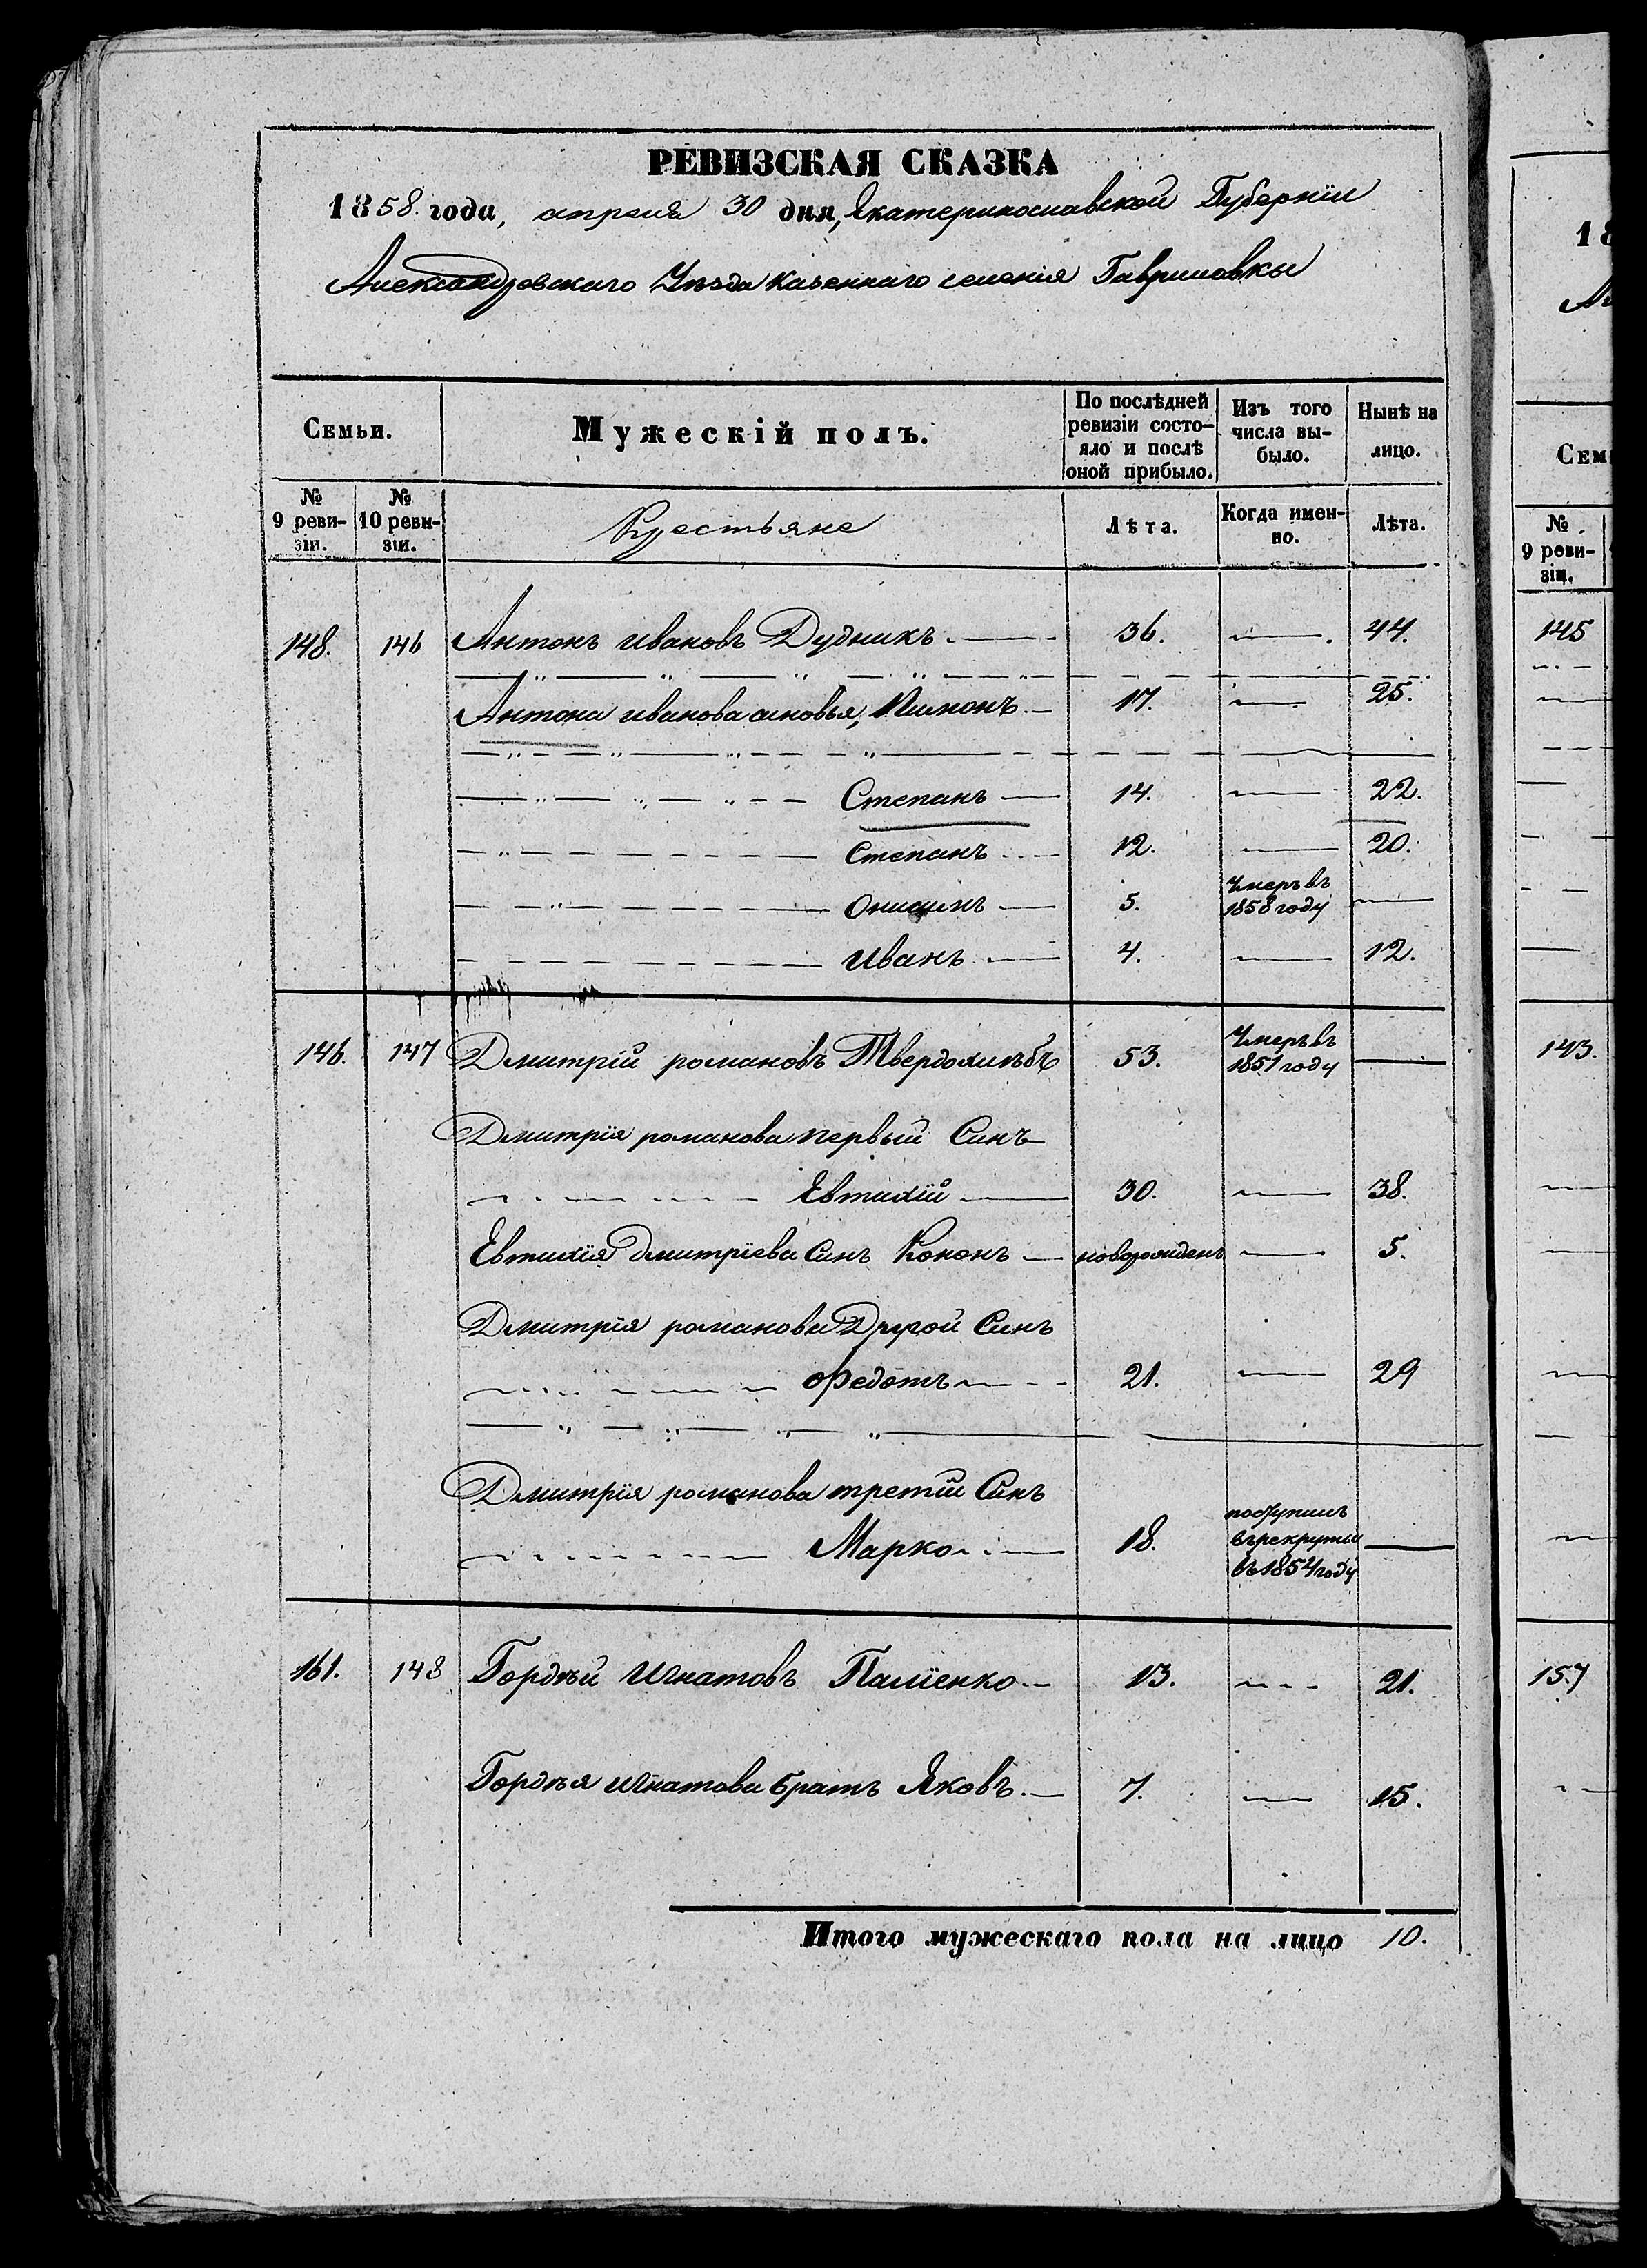 РЕВИЗСКАЯ СКАЗКА
1858. года, апреля 30 дня, Екатеринославской Губернїи
Александровскаго Уѣзда Казеннаго селенія Гавриловки
Семьи.
Мужескій полъ.
По послѣдней ревизіи состояло и послѣ оной прибыло.
Изъ того числа выбыло.
Нынѣ на лицо.
№ 9 ревизіи.
№ 10 ревизіи.
Крестьяне
Лѣта.
Когда именно.
Лѣта.
148. 146 Антонъ Ивановъ Дудникъ 36. — 44.
Антона Иванова синовья, Пимонъ 17. — 25.
Степанъ 14. — 22.
Степанъ 12. — 20.
Онисимъ 5. Умеръ въ 1858 году —
Иванъ 4. — 12.
146. 147 Дмитрій романовъ Твердохлѣбъ 53. Умеръ въ 1851 году —
Дмитрїя романова первый Синъ
Евтихїй 30. — 38.
Евтихїя Дмитрїева Синъ Кононъ новорожденъ — 5.
Дмитрїя романова Другой Синъ
Федотъ 21. — 29
Дмитрїя романова третїй Синъ
Марко 18. поступилъ въ рекруты въ 1854 году —
161. 148 Гордѣй Игнатовъ Палїенко 13. — 21.
Гордѣя Игнатова братъ Яковъ 7. — 15.
Итого мужескаго пола на лицо 10.
18
Сем
№ 9 ревизіи.
145
143.
157